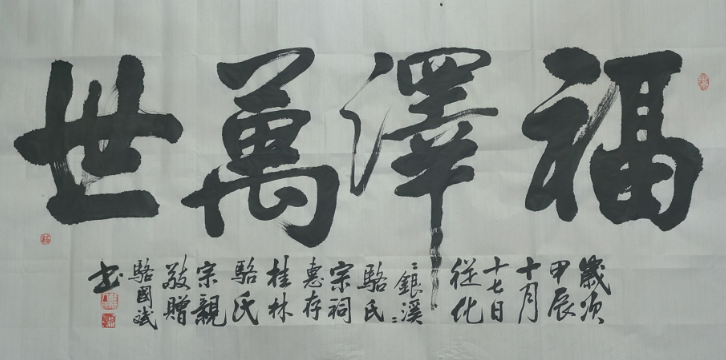 福澤萬世
歲次
甲辰
十月
十七日
從化
銀溪
駱氏
宗祠
惠存
桂林
駱氏
宗親
敬贈
駱國斌
書